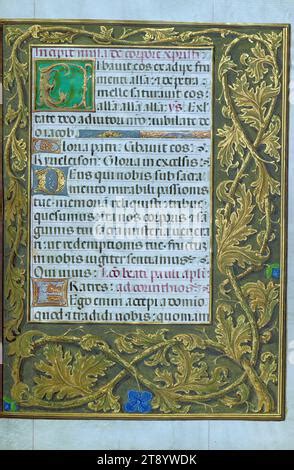 Incipit missa de corpore xpristi
Cibavit eos ex adipe fru
menti alla: et de petra
melle saturavit eos:
alla alla alla. ps. Exul
tate deo adiutori nostro: iubilate de
o iacob
Gloria patri. Cibavit eos.
Kyrieleison. Gloria in excelsis.
Deus qui nobis sub sacra
mento mirabili passionis
tue memoriam
quesumus: nos corporis
sanguinis tui sacra misteria venera
ri: ut redemptionis tue fructum
in nobis iugiter sentiamus.
Qui vivis. Lectio beati pauli apli
Fratres. ad corinthios.
Ego enim accepi a domino
quod et tradidi vobis: quoniam
alamy
Image ID: 2T81YWDK
www.alamy.com